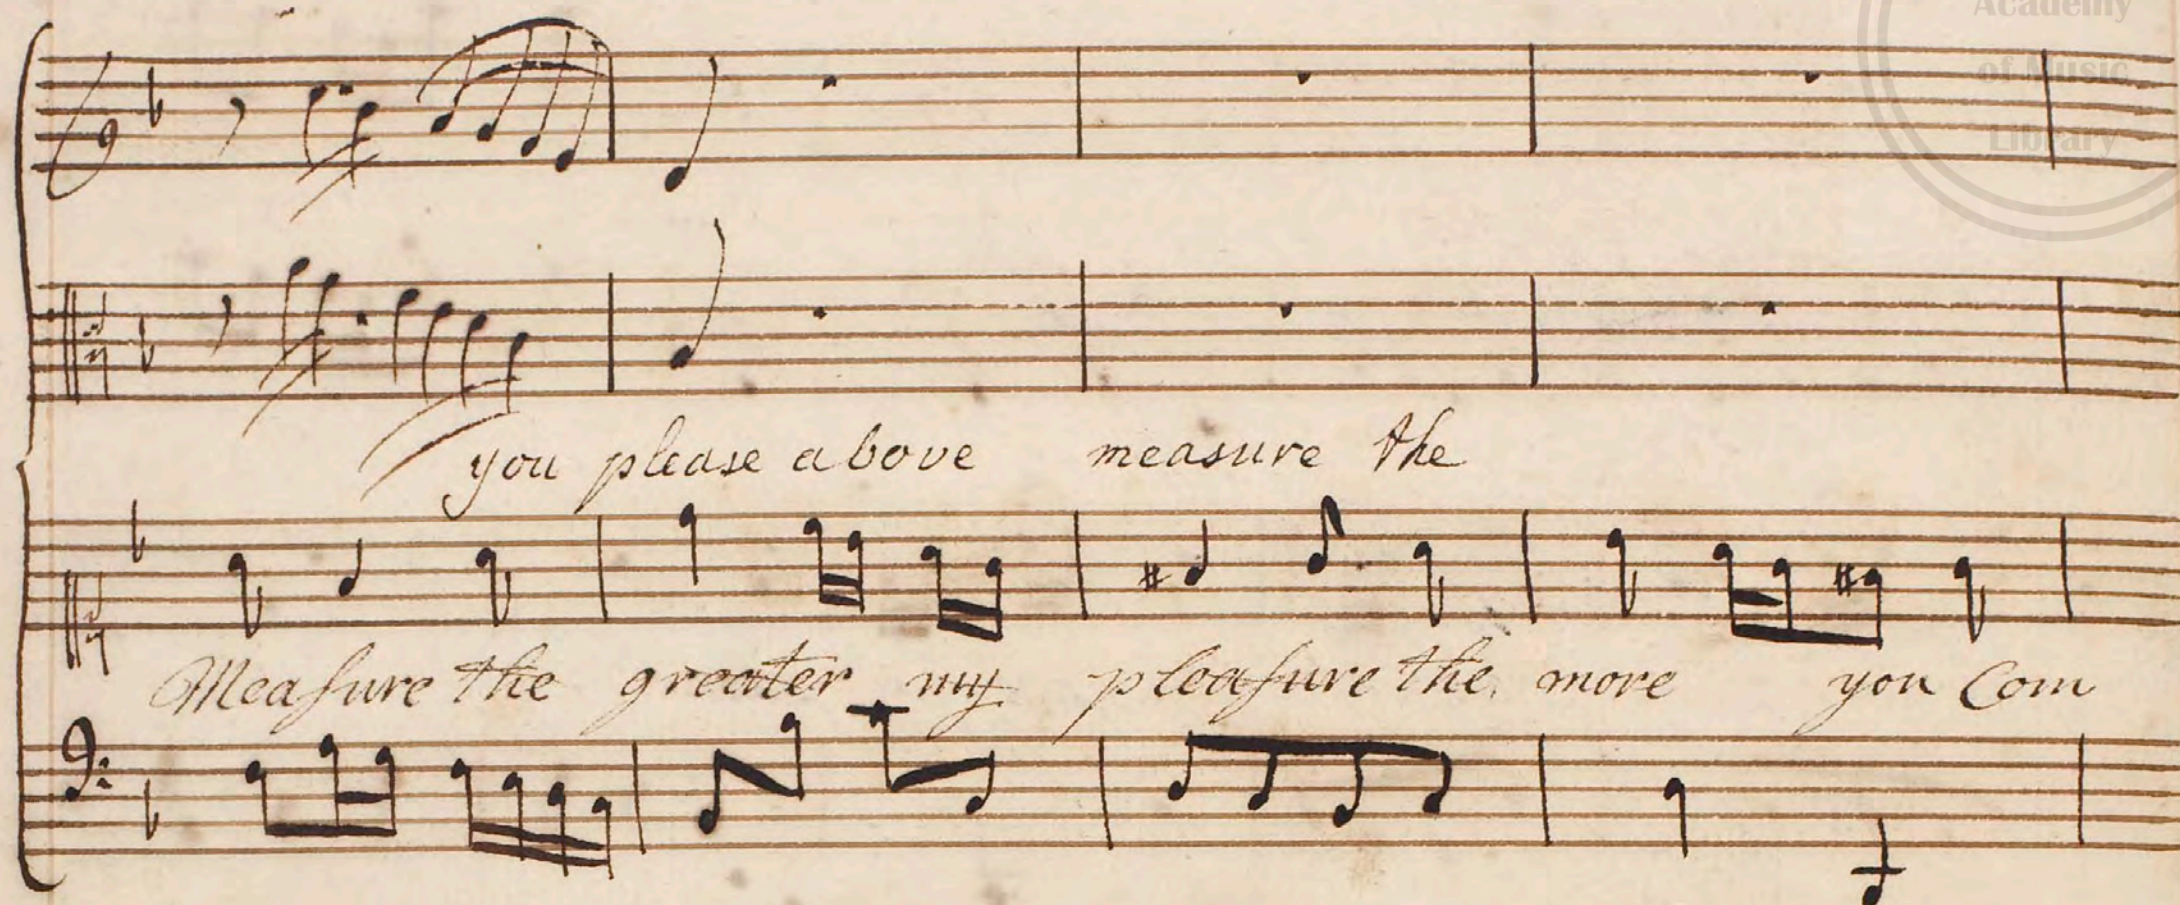 Academy
of Music
Library
you please above measure the
Meaſure the greater my pleaſure the more you Com